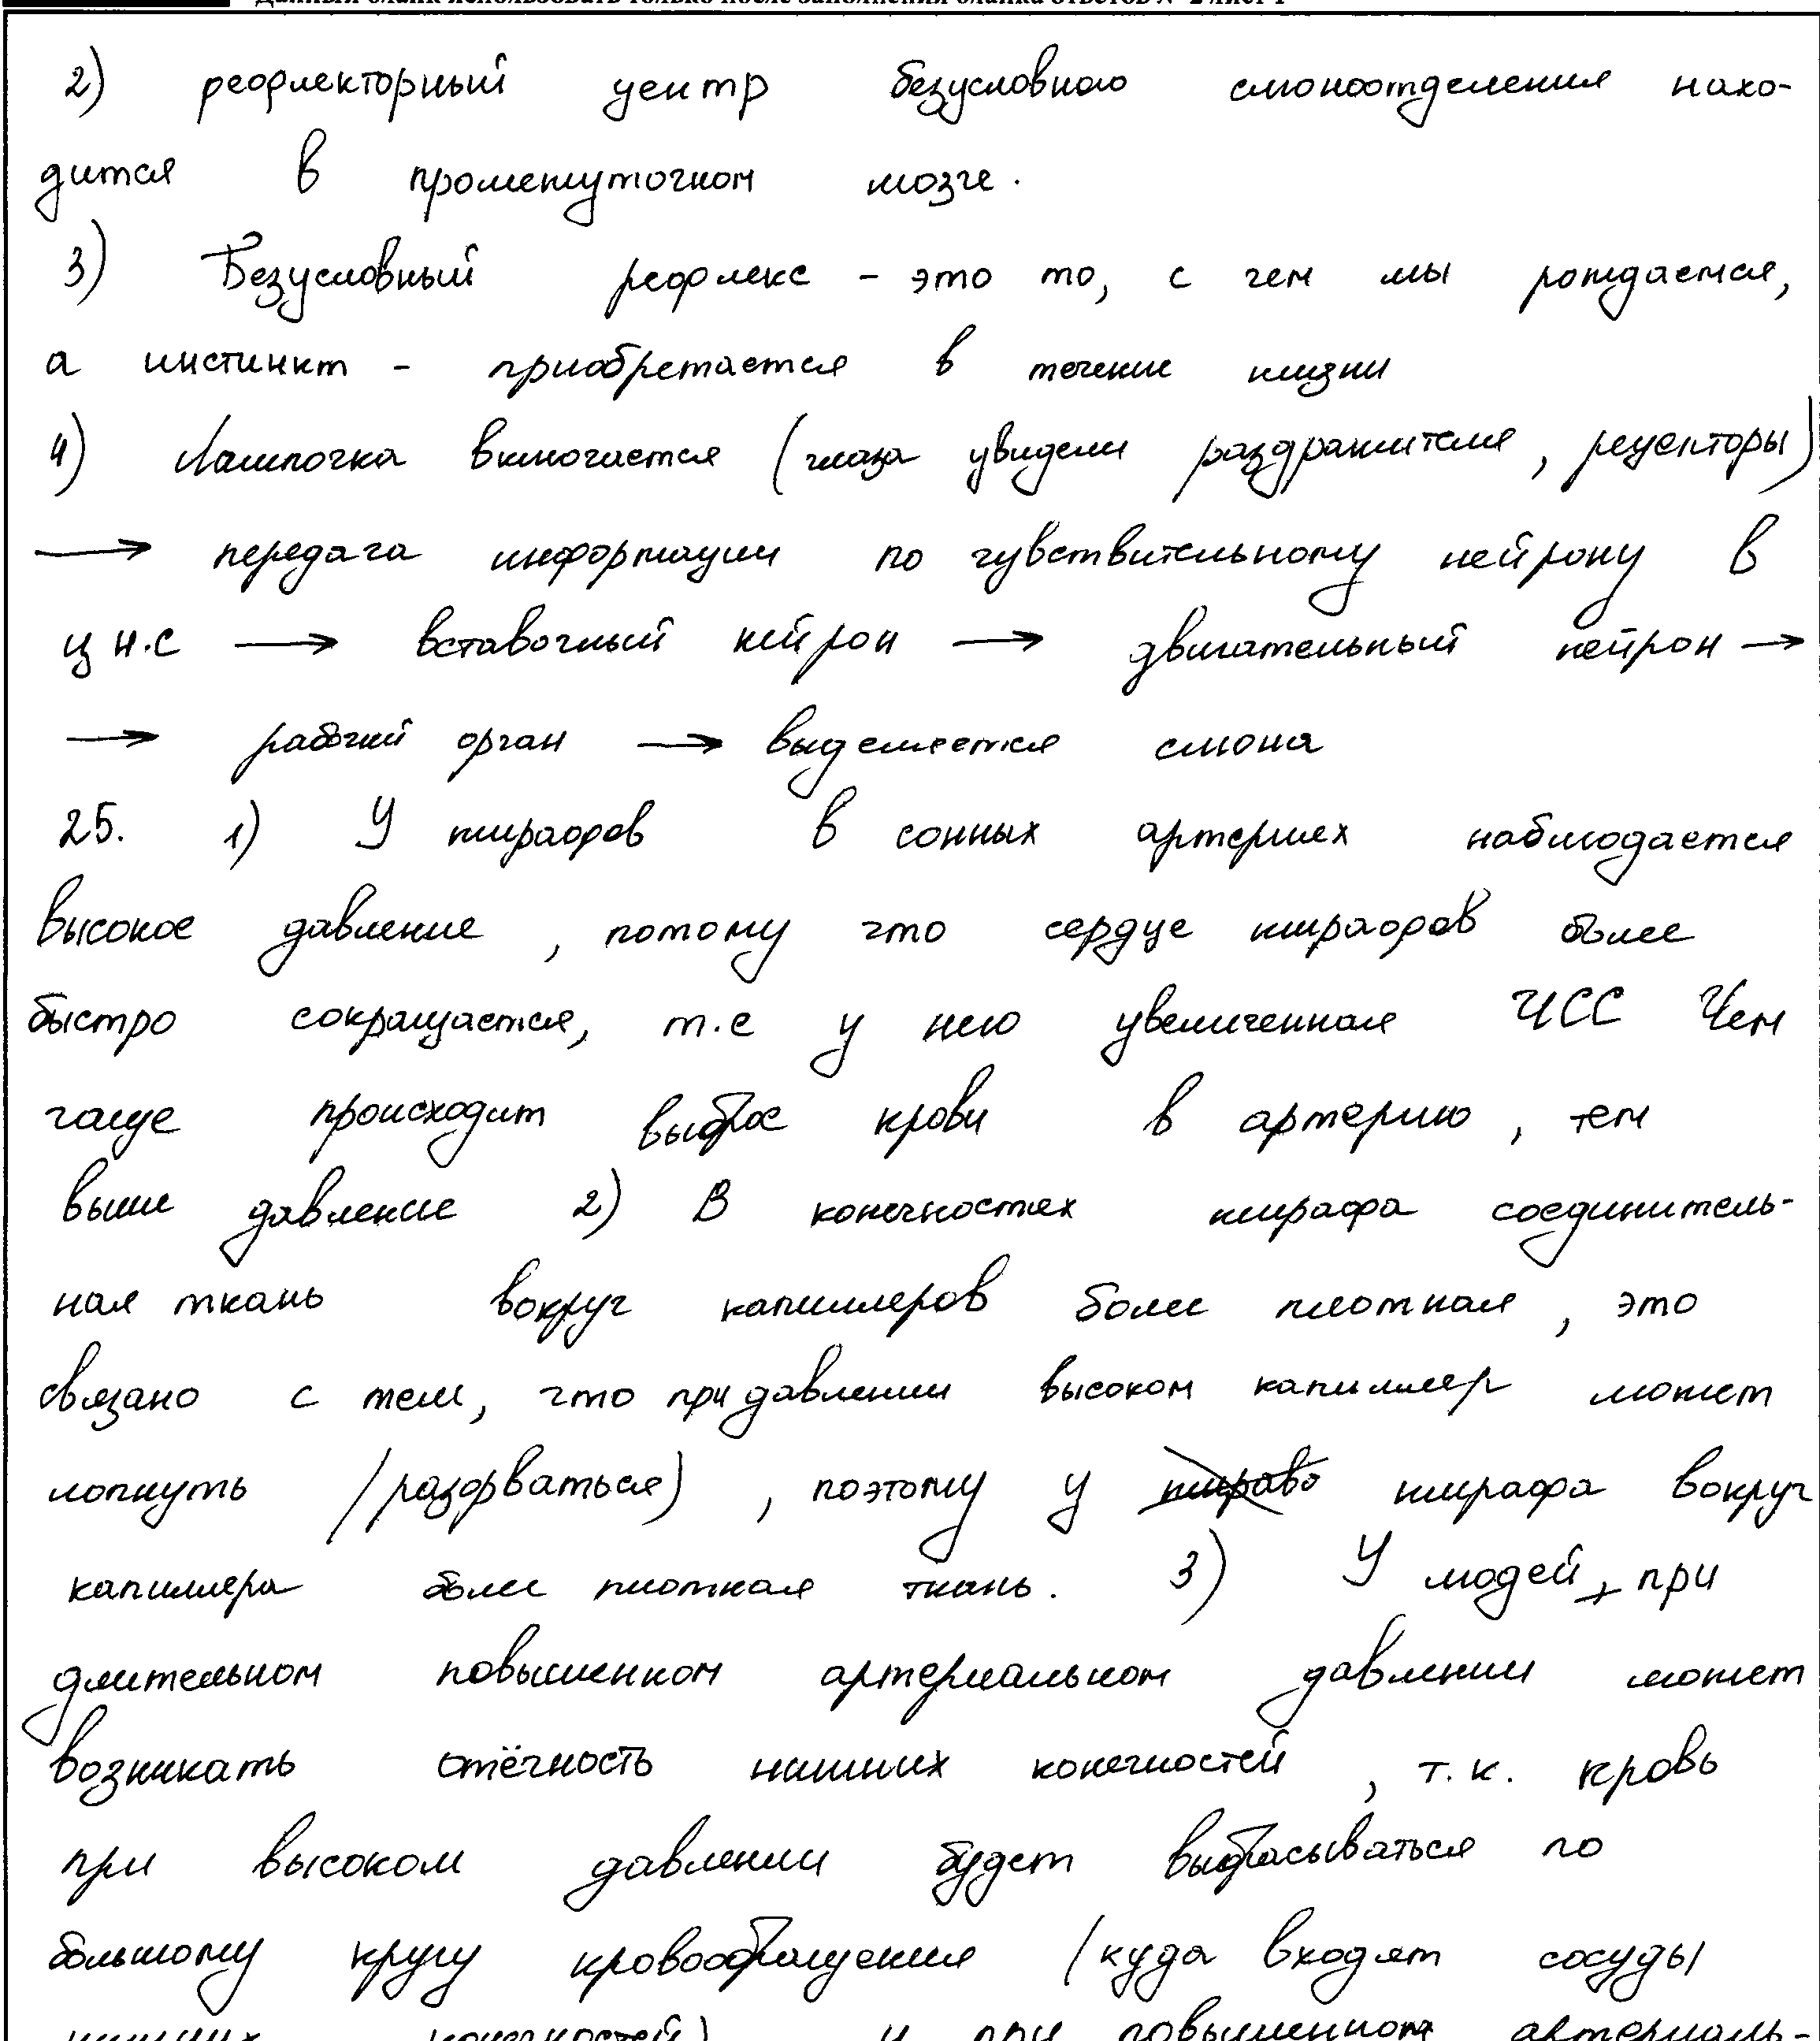 Данный бланк использовать только после заполнения бланка ответов № 2 лист 1
2) рефлекторный центр безусловного слюноотделения нахо-
дится в промежуточном мозге.
3) Безусловный рефлекс - это то, с чем мы рождаемся,
а инстинкт - приобретается в течение жизни
4) Лампочка включается (глаза увидели раздражителя, рецепторы)
→ передача информации по чувствительному нейрону в
ц н.с → вставочный нейрон → двигательный нейрон →
→ рабочий орган → выделяется слюна
25. 1) У жирафов в сонных артериях наблюдается
высокое давление, потому что сердце жирафов более
быстро сокращается, т.е у него увеличенная ЧСС Чем
чаще происходит выброс крови в артерию, тем
выше давление 2) В конечностях жирафа соединитель-
ная ткань вокруг капилляров более плотная, это
связано с тем, что при давлении высоком капилляр может
лопнуть (разорваться), поэтому у жирафа вокруг
капилляра более плотная ткань. 3) У людей, при
длительном повышенном артериальном давлении может
возникать отёчность нижних конечностей, т.к. кровь
при высоком давлении будет выбрасываться по
большому кругу кровообращения (куда входят сосуды
нижних конечностей) и при повышенном артериаль-